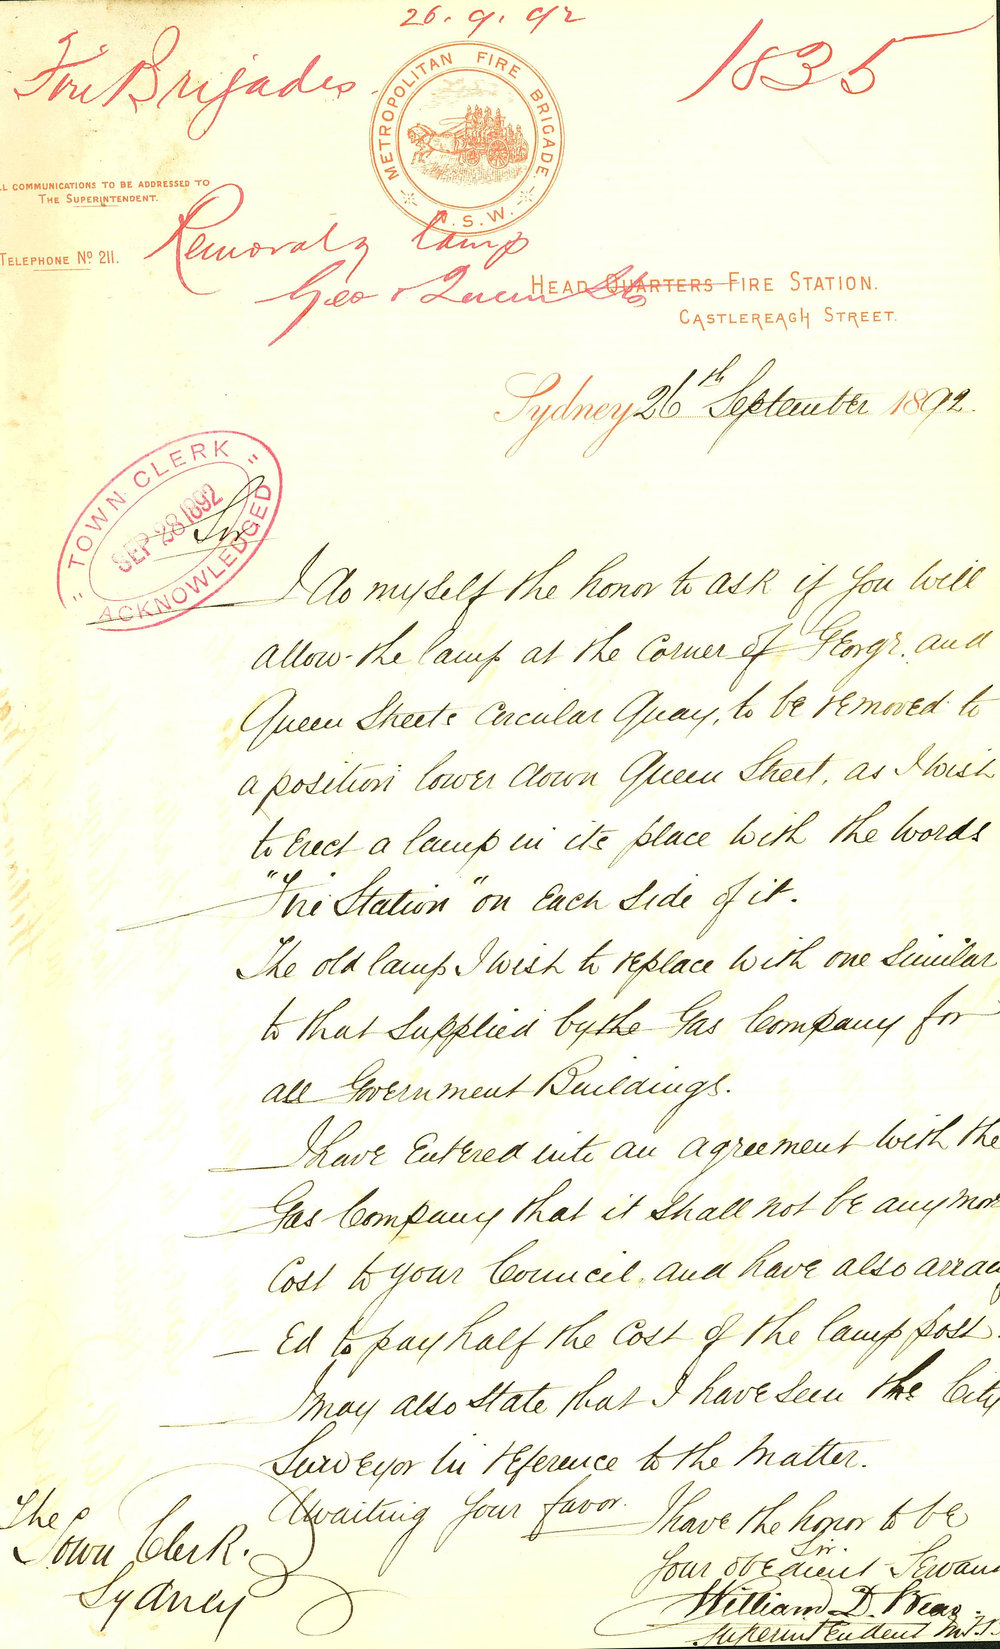 26. 9. 92
Fire Brigades.
1835
METROPOLITAN FIRE BRIGADE
N.S.W.
LL COMMUNICATIONS TO BE ADDRESSED TO
THE SUPERINTENDENT.
TELEPHONE No 211.
Removal of lamp
Geo & Queen Sts
HEAD QUARTERS FIRE STATION.
CASTLEREAGH STREET.
Sydney 26th September 1892.
"TOWN CLERK"
SEP 28 1892
ACKNOWLEDGED
Sir
I do myself the honor to ask if you will
allow the lamp at the corner of George and
Queen Streets Circular Quay, to be removed to
a position lower down Queen Street, as I wish
to erect a lamp in its place with the words
"Fire Station" on each side of it.
The old lamp I wish to replace with one similar
to that supplied by the Gas Company for
all Government Buildings.
I have entered into an agreement with the
Gas Company that it shall not be any mor
cost to your Council, and have also arran
ed to pay half the cost of the lamp post.
I may also state that I have seen the City
Surveyor in reference to the matter.
Awaiting your favor.
I have the honor to be
Sir.
Your obedient Servan
William D. Bear
Superintendent M.F.B.
The
Town Clerk.
Sydney